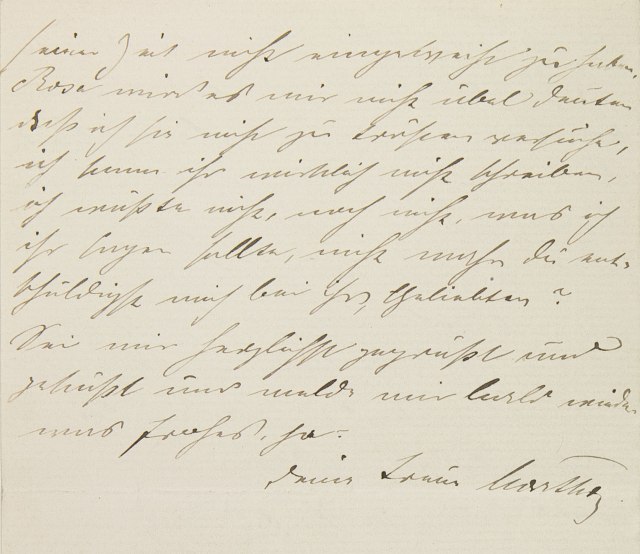 seiner Zeit nicht eingeweiht zu haben.
Rosa wird es mir nicht übel deuten
daß ich sie nicht zu trösten versuche,
ich kann ihr wirklich nicht schreiben,
ich wüßte nicht, noch nicht, was ich
ihr sagen sollte, nicht wahr du ent-
schuldigst mich bei ihr, Geliebten?
Sei mir herzlichst gegrüßt und
geküßt und melde mir bald wieder
was frohes,
Deine treue Martha